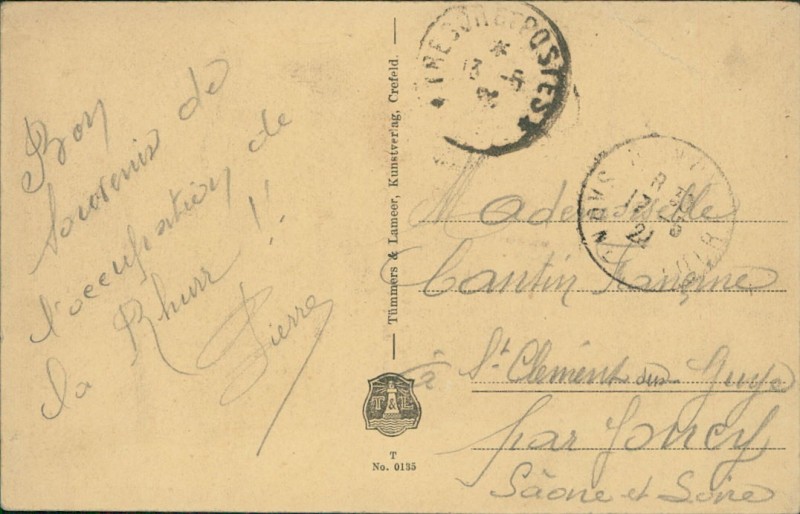 Bon
souvenir de
l'occupation de
la Rhurr !!
Pierre
Tümmers & Lameer, Kunstverlag, Crefeld.
T & L
T
No. 0135
* TRESOR ET POSTES *
*
13 -5
Mademoiselle
Cantin
à St Clément sur Guye
par Joncy
Saône et Loire